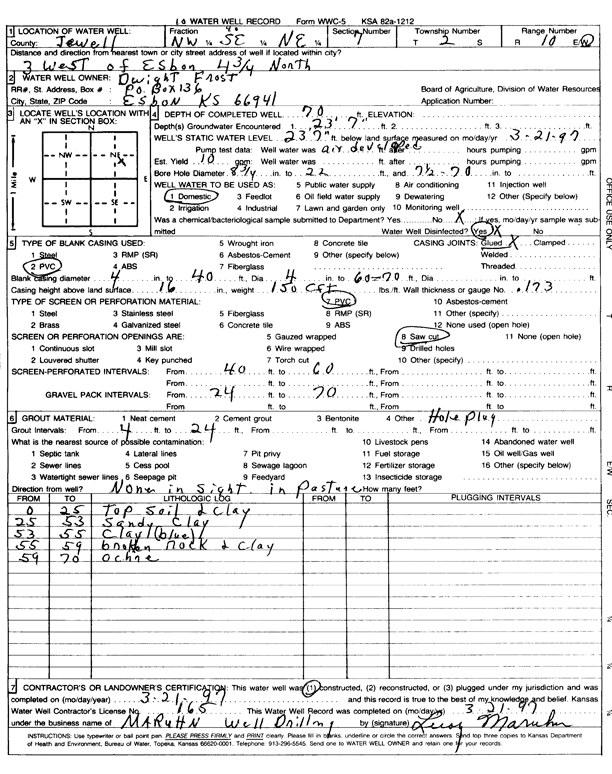 WATER WELL RECORD Form WWC-5 KSA 82a-1212
1 LOCATION OF WATER WELL: Fraction Section Number Township Number Range Number
County: Jewell NW ¼ SE ¼ NE ¼ 7 T 2 S R 10 E/W
Distance and direction from nearest town or city street address of well if located within city?
3 West of Esbon 4 3/4 North
2 WATER WELL OWNER: Dwight Frost
RR#, St. Address, Box # : P.O. Box 136 Board of Agriculture, Division of Water Resources
City, State, ZIP Code : Esbon KS 66941 Application Number:
3 LOCATE WELL'S LOCATION WITH AN "X" IN SECTION BOX:
N
NW NE X
W E
SW SE
S
1 Mile
4 DEPTH OF COMPLETED WELL 70 ft. ELEVATION:
Depth(s) Groundwater Encountered 1. 23' 7" ft. 2. ft. 3. ft.
WELL'S STATIC WATER LEVEL 23'7" ft. below land surface measured on mo/day/yr 3-21-97
Pump test data: Well water was ft. after hours pumping gpm
Est. Yield 10 gpm: Well water was ft. after hours pumping gpm
Bore Hole Diameter 8 3/4 in. to 22 ft., and 7 1/2 - 70 in. to ft.
WELL WATER TO BE USED AS: 5 Public water supply 8 Air conditioning 11 Injection well
1 Domestic 3 Feedlot 6 Oil field water supply 9 Dewatering 12 Other (Specify below)
2 Irrigation 4 Industrial 7 Lawn and garden only 10 Monitoring well
Was a chemical/bacteriological sample submitted to Department? Yes No X If yes, mo/day/yr sample was submitted
Water Well Disinfected? Yes X No
5 TYPE OF BLANK CASING USED: 5 Wrought iron 8 Concrete tile CASING JOINTS: Glued X Clamped
1 Steel 3 RMP (SR) 6 Asbestos-Cement 9 Other (specify below) Welded
2 PVC 4 ABS 7 Fiberglass Threaded
Blank casing diameter 4 in. to 40 ft., Dia 4 in. to 60-70 ft., Dia in. to ft.
Casing height above land surface 16 in., weight 150 Cft lbs./ft. Wall thickness or gauge No. .173
TYPE OF SCREEN OR PERFORATION MATERIAL: 7 PVC 10 Asbestos-cement
1 Steel 3 Stainless steel 5 Fiberglass 8 RMP (SR) 11 Other (specify)
2 Brass 4 Galvanized steel 6 Concrete tile 9 ABS 12 None used (open hole)
SCREEN OR PERFORATION OPENINGS ARE: 5 Gauzed wrapped 8 Saw cut 11 None (open hole)
1 Continuous slot 3 Mill slot 6 Wire wrapped 9 Drilled holes
2 Louvered shutter 4 Key punched 7 Torch cut 10 Other (specify)
SCREEN-PERFORATED INTERVALS: From 40 ft. to 60 ft., From ft. to ft.
From ft. to ft., From ft. to ft.
GRAVEL PACK INTERVALS: From 24 ft. to 70 ft., From ft. to ft.
From ft. to ft., From ft. to ft.
6 GROUT MATERIAL: 1 Neat cement 2 Cement grout 3 Bentonite 4 Other Hole plug
Grout Intervals: From 4 ft. to 24 ft., From ft. to ft., From ft. to ft.
What is the nearest source of possible contamination: 10 Livestock pens 14 Abandoned water well
1 Septic tank 4 Lateral lines 7 Pit privy 11 Fuel storage 15 Oil well/Gas well
2 Sewer lines 5 Cess pool 8 Sewage lagoon 12 Fertilizer storage 16 Other (specify below)
3 Watertight sewer lines 6 Seepage pit 9 Feedyard 13 Insecticide storage
Direction from well? None in sight. in Pasture How many feet?
FROM TO LITHOLOGIC LOG FROM TO PLUGGING INTERVALS
0 25 Top soil & clay
25 53 Sandy clay
53 55 Clay (blue)
55 59 broken rock & clay
59 70 ochre
7 CONTRACTOR'S OR LANDOWNER'S CERTIFICATION: This water well was (1) constructed, (2) reconstructed, or (3) plugged under my jurisdiction and was
completed on (mo/day/year) 3-21-97 and this record is true to the best of my knowledge and belief. Kansas
Water Well Contractor's License No. 165 This Water Well Record was completed on (mo/day/yr) 3-21-97
under the business name of MARUHN Well Drilling by (signature) Maruhn
INSTRUCTIONS: Use typewriter or ball point pen. PLEASE PRESS FIRMLY and PRINT clearly. Please fill in blanks, underline or circle the correct answers. Send top three copies to Kansas Department
of Health and Environment, Bureau of Water, Topeka, Kansas 66620-0001. Telephone: 913-296-5545. Send one to WATER WELL OWNER and retain one for your records.
OFFICE USE ONLY
T
R
E/W
SEC.